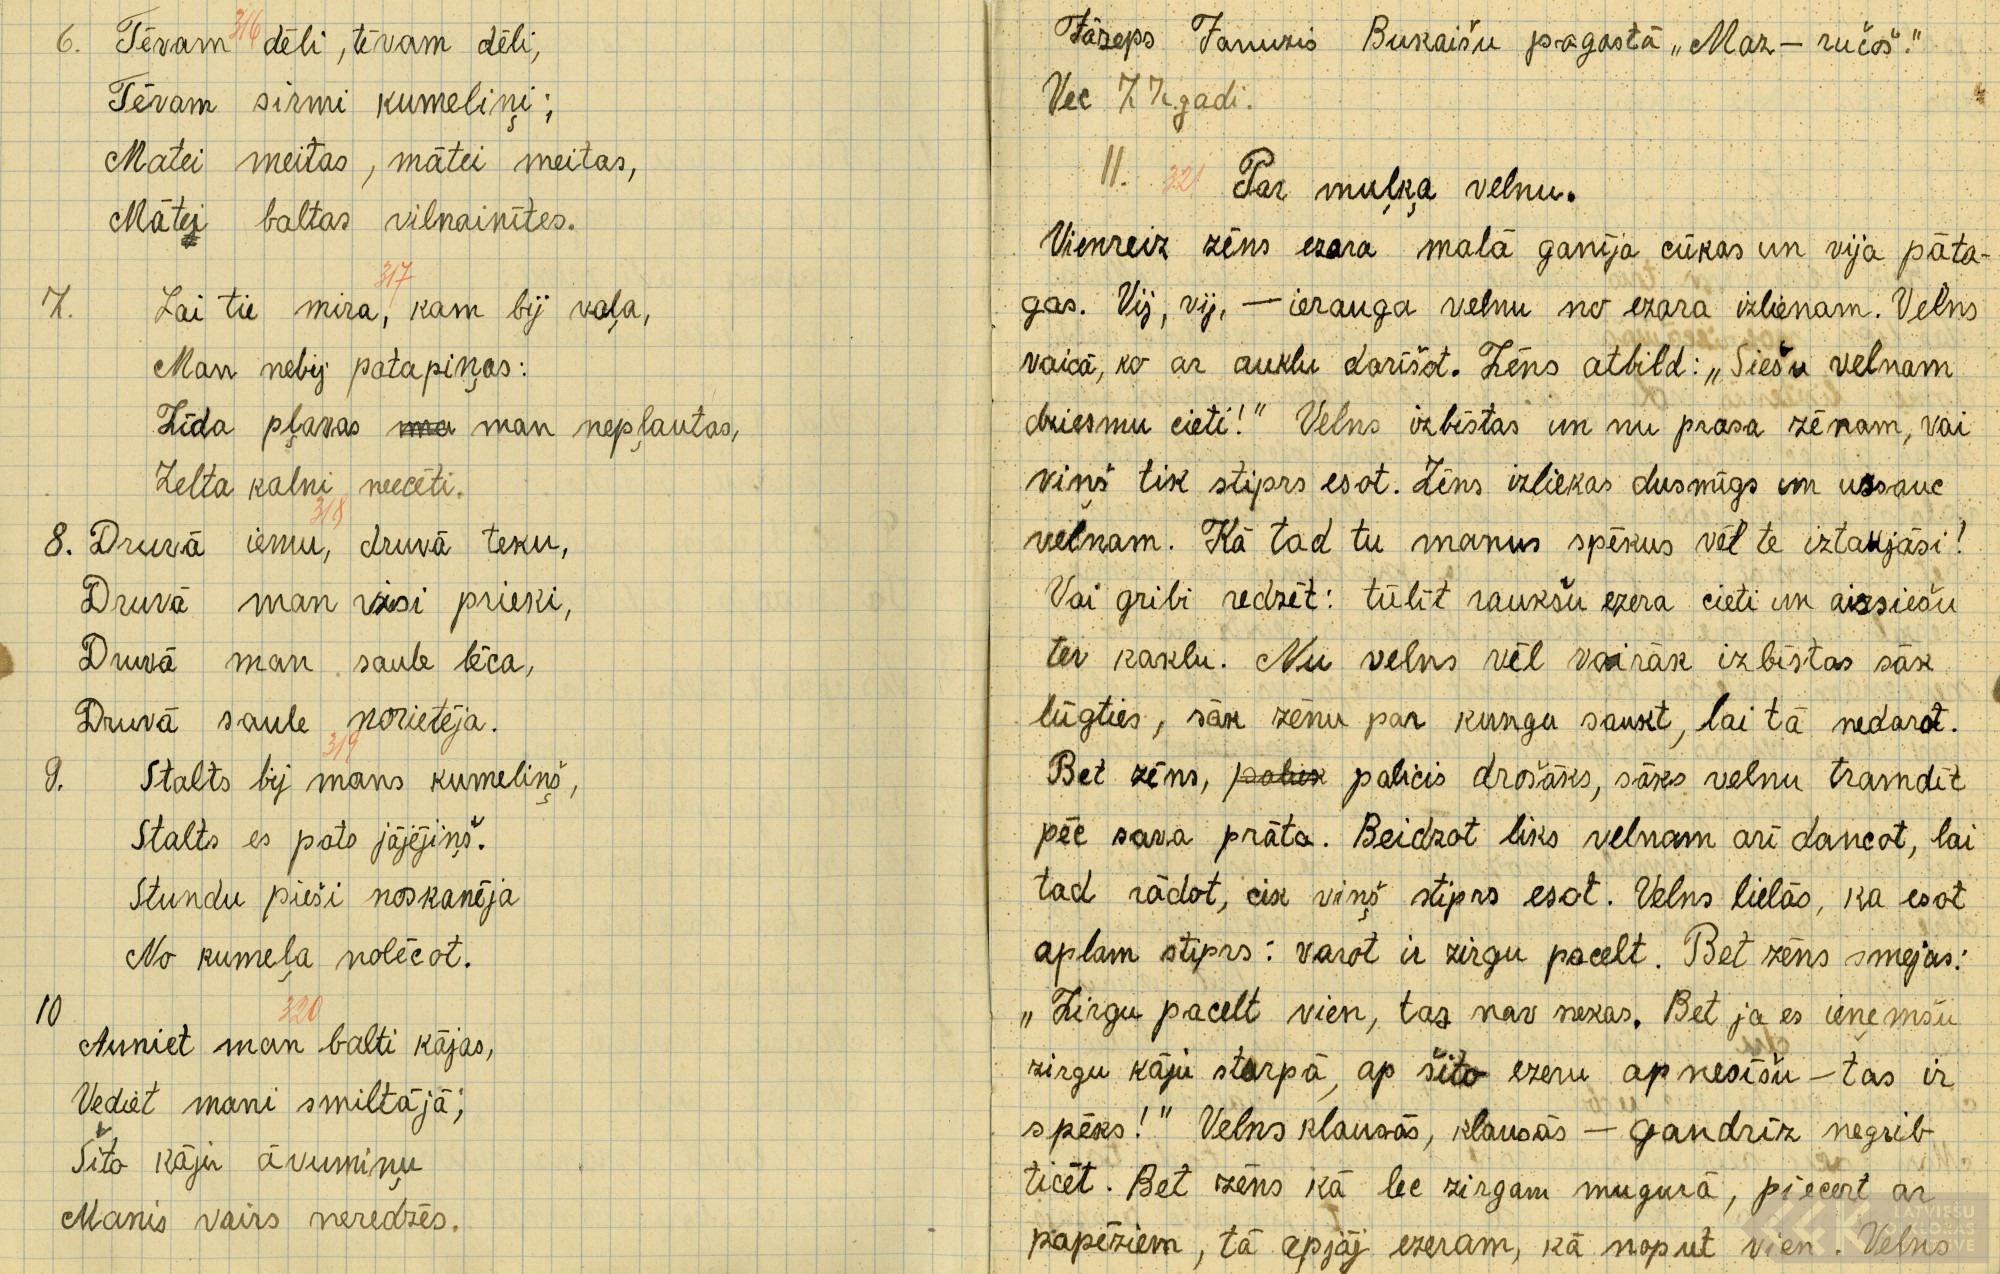 6. Tēvam 316 dēli, tēvam dēli,
Tēvam sirmi kumeliņi;
Mātei meitas, mātei meitas,
Mātei baltas vilnainītes.
317
7. Lai tie mira, kam bij vaļa,
Man nebij patapiņas:
Zīda pļavas man nepļautas,
Zelta kalni neecēti.
318
8. Druvā iemu, druvā teku,
Druvā man visi prieki,
Druvā man saule lēca,
Druvā saule norietēja.
319
9. Stalts bij mans kumeliņš,
Stalts es pats jājējiņš.
Stundu pieši noskanēja
No kumeļa nolēcot.
10
320
Auniet man balti kājas,
Vediet mani smiltājā;
Šito kāju āvumiņu
Manis vairs neredzēs.
Jāzeps Janužis Bukaišu pagastā „Maz-ručos."
Vec 77 gadi.
11. 321 Par muļķa velnu.
Vienreiz zēns ezara malā ganīja cūkas un vija pāta-
gas. Vij, vij, — ierauga velnu no ezara izlienam. Velns
vaicā, ko ar auklu darīšot. Zēns atbild: „Siešu velnam
dziesmu cieti!" Velns izbīstas un nu prasa zēnam, vai
viņš tik stiprs esot. Zēns izliekas dusmīgs un uzsauc
velnam. Kā tad tu manus spēkus vēl te iztaujāsi!
Vai gribi redzēt: tūlīt raukšu ezera cieti un aizsiešu
tev kaklu. Nu velns vēl vairāk izbīstas sāk
lūgties, sāk zēnu par kungu saukt, lai tā nedarot.
Bet zēns, palicis drošāks, sāks velnu tramdīt
pēc sava prāta. Beidzot liks velnam arī dancot, lai
tad rādot, cik viņš stiprs esot. Velns lielās, ka esot
aplam stiprs: varot ir zirgu pacelt. Bet zēns smejas:
„Zirgu pacelt vien, tas nav nekas. Bet ja es ieņemšu
zirgu kāju starpā, ap šito ezeru apnesīšu — tas ir
spēks!" Velns klausās, klausās — gandrīz negrib
ticēt. Bet zēns kā lec zirgam mugurā, piecert ar
papēžiem, tā apjāj ezeram, kā noput vien. Velns
LATVIEŠU
FOLKLORAS